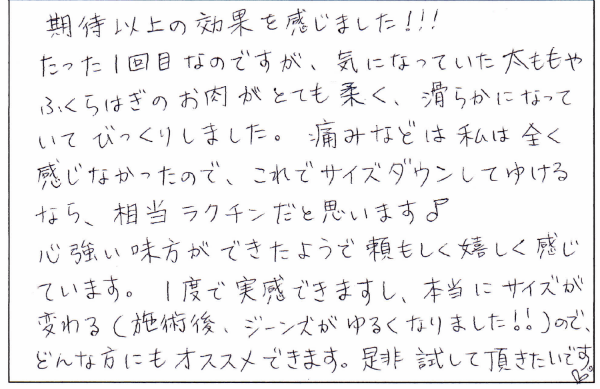 期待以上の効果を感じました!!!
たった1回目なのですが、気になっていた太ももや
ふくらはぎのお肉がとても柔く、滑らかになって
いてびっくりしました。痛みなどは私は全く
感じなかったので、これでサイズダウンしてゆける
なら、相当ラクチンだと思います♪
心強い味方ができたようで頼もしく嬉しく感じ
ています。1度で実感できますし、本当にサイズが
変わる(施術後、ジーンズがゆるくなりました!!)ので、
どんな方にもオススメできます。是非試して頂きたいです。